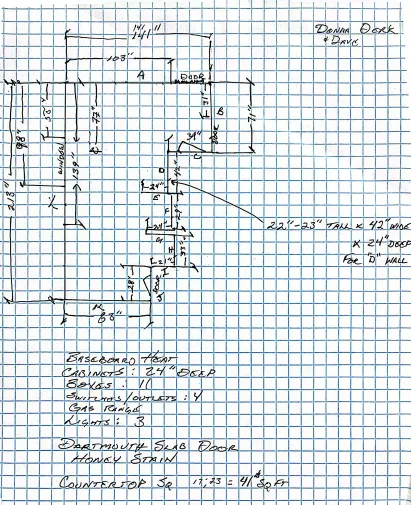 141"
DONNA DERK
& DAVE
103"
A
DOOR
31"
B
71"
DOOR
34"
C
D
42"
24"
E
F
29"
24"
G
H
33"
21"
I
28"
DOOR
J
K
63"
213"
98"
53"
WINDOW
139"
77"
L
22"-23" TALL X 42" WIDE
X 24" DEEP
FOR "D" WALL
BASEBOARD HEAT
CABINETS: 24" DEEP
BOXES: 11
SWITCHES/OUTLETS: 4
GAS RANGE
LIGHTS: 3
DARTMOUTH SLAB DOOR
HONEY STAIN
COUNTERTOP SQ 17;23 = 41 SQ FT